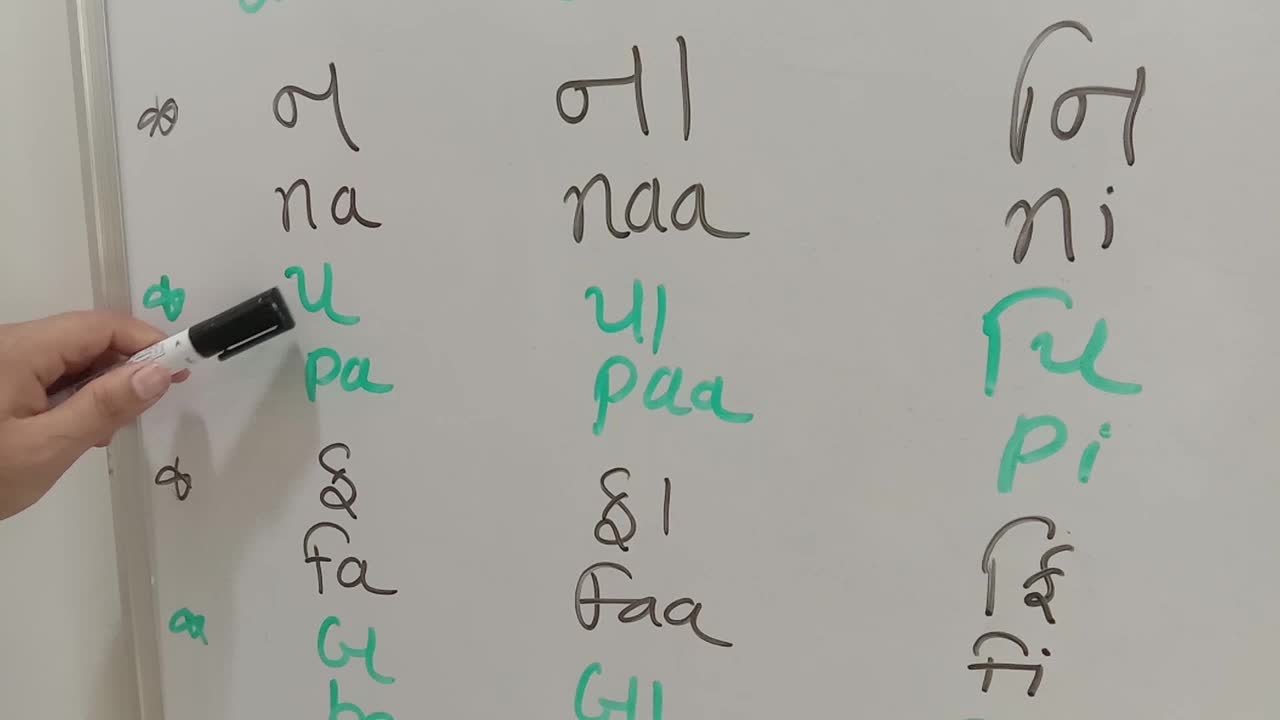 ન ના નિ
na naa ni
પ પા પિ
pa paa pi
ફ ફા ફિ
fa faa fi
બ બા